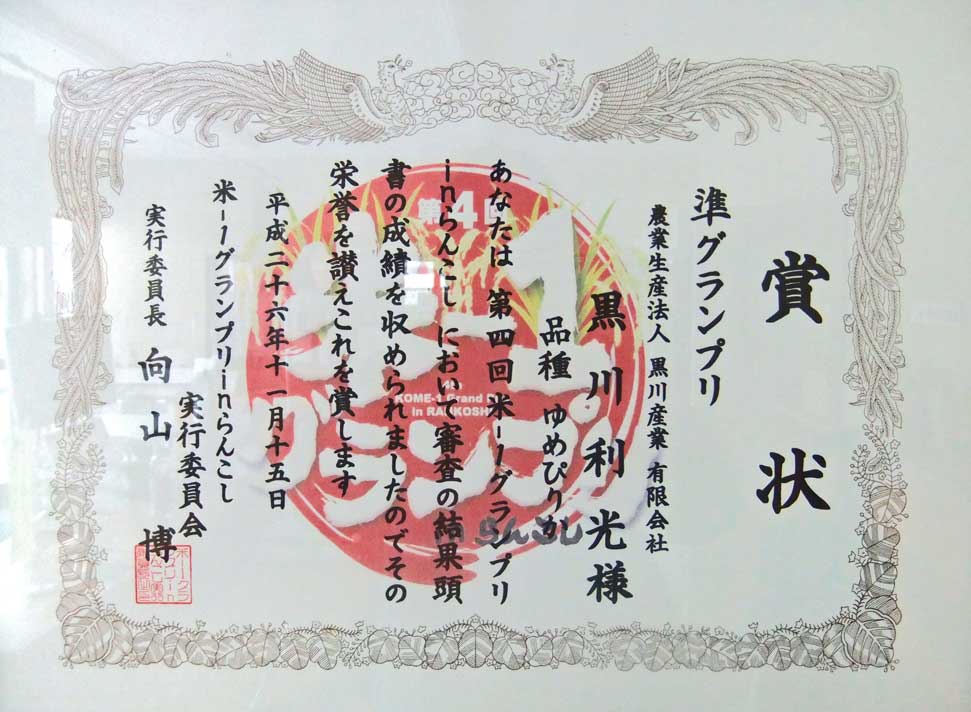 賞状
準グランプリ
農業生産法人 黒川産業 有限会社
黒川利光様
品種 ゆめぴりか
あなたは 第四回米一グランプリ
inらんこし において審査の結果頭
書の成績を収められましたのでその
栄誉を讃えこれを賞します
平成二十六年十一月十五日
米一グランプリinらんこし
実行委員会
実行委員長 向山 博
第4回
米-1
グランプリ
KOME-1 Grand
in RANKOSHI
in らんこし